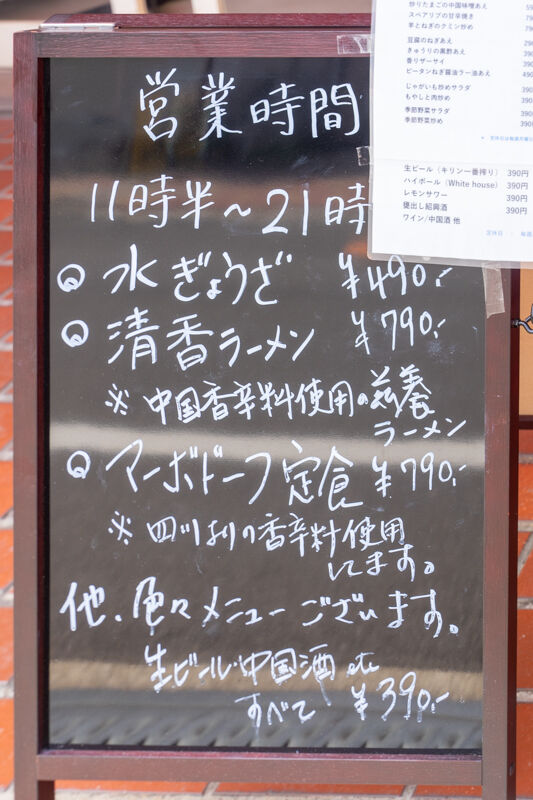 営業時間
11時半～21時
水ぎょうざ ¥490.-
清香ラーメン ¥790.-
※ 中国香辛料使用の滋養
ラーメン
マーボドーフ定食 ¥790.-
※ 四川よりの香辛料使用
してます。
他、色々メニューございます。
生ビール・中国酒 etc
すべて ¥390.-
炒りたまごの中国味噌あえ
スペアリブの甘辛焼き
羊とねぎのクミン炒め
豆腐のねぎあえ
きゅうりの黒酢あえ
香リザーサイ
ピータンねぎ醤油ラー油あえ
じゃがいも炒めサラダ
もやしと肉炒め
季節野菜サラダ
季節野菜炒め
生ビール（キリン一番搾り） 390円
ハイボール（White house） 390円
レモンサワー 390円
甕出し紹興酒 390円
ワイン/中国酒 他
定休日 ：